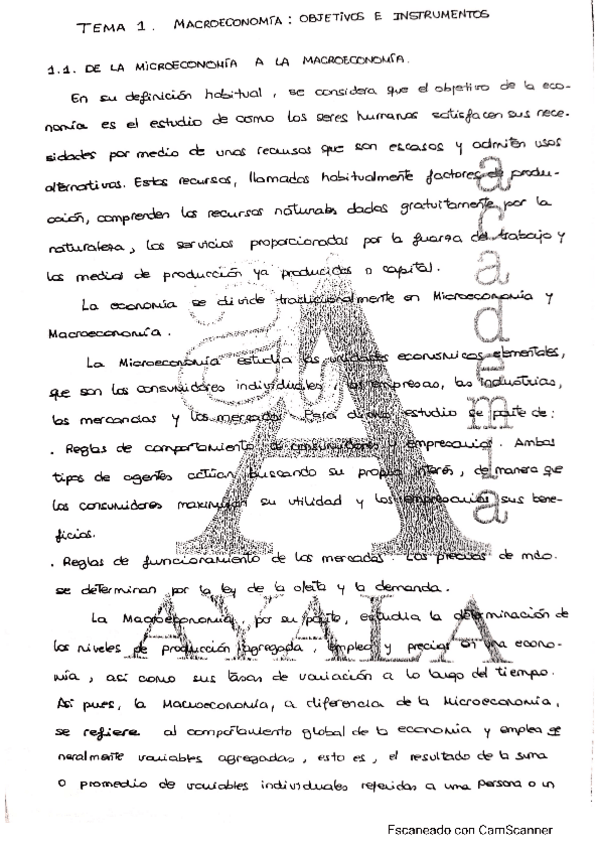 TEMA 1. MACROECONOMÍA: OBJETIVOS E INSTRUMENTOS
1.1. DE LA MICROECONOMÍA A LA MACROECONOMÍA.
En su definición habitual, se considera que el objetivo de la eco-
nomía es el estudio de como los seres humanos satisfacen sus nece-
sidades por medio de unos recursos que son escasos y admiten usos
alternativos. Estos recursos, llamados habitualmente factores de produ-
cción, comprenden los recursos naturales dados gratuitamente por la
naturaleza, los servicios proporcionados por la fuerza del trabajo y
los medios de producción ya producidos o capital.
La economía se divide tradicionalmente en Microeconomía y
Macroeconomía.
La Microeconomía estudia las unidades económicas elementales,
que son los consumidores individuales, las empresas, las industrias,
las mercancías y los mercados. Para dicho estudio se parte de:
. Reglas de comportamiento de consumidores y empresarios. Ambos
tipos de agentes actúan buscando su propio interés, de manera que
los consumidores maximizan su utilidad y los empresarios sus bene-
ficios.
. Reglas de funcionamiento de los mercados. Los precios de mdo.
se determinan por la ley de la oferta y la demanda.
La Macroeconomía, por su parte, estudia la determinación de
los niveles de producción agregada, empleo y precios en una econo-
mía, así como sus tasas de variación a lo largo del tiempo.
Así pues, la Macroeconomía, a diferencia de la Microeconomía,
se refiere al comportamiento global de la economía y emplea ge
neralmente variables agregadas, esto es, el resultado de la suma
o promedio de variables individuales referidas a una persona o un
academia
AYALA
Escaneado con CamScanner